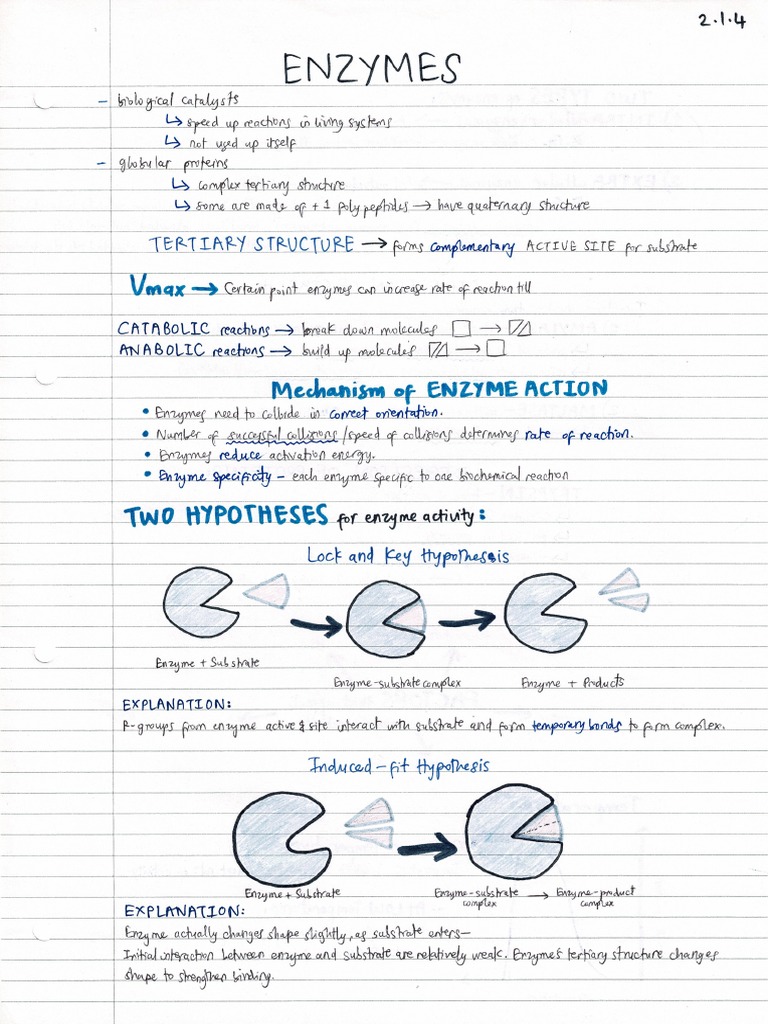 2.1.4
ENZYMES
- biological catalysts
↳ speed up reactions in living systems
↳ not used up itself
- globular proteins
↳ complex tertiary structure
↳ some are made of + 1 polypeptides → have quaternary structure
TERTIARY STRUCTURE → forms complementary ACTIVE SITE for substrate
Vmax → Certain point enzymes can increase rate of reaction till
CATABOLIC reactions → break down molecules →
ANABOLIC reactions → build up molecules →
Mechanism of ENZYME ACTION
• Enzymes need to collide in correct orientation.
• Number of successful collisions/speed of collisions determines rate of reaction.
• Enzymes reduce activation energy.
• Enzyme specificity - each enzyme specific to one biochemical reaction
TWO HYPOTHESES for enzyme activity:
Lock and Key Hypothesis
Enzyme + Substrate
Enzyme-substrate complex
Enzyme + Products
EXPLANATION:
R-groups from enzyme active site interact with substrate and form temporary bonds to form complex.
Induced-fit Hypothesis
Enzyme + Substrate
Enzyme-substrate complex → Enzyme-product complex
EXPLANATION:
Enzyme actually changes shape slightly, as substrate enters-
Initial interaction between enzyme and substrate are relatively weak. Enzyme's tertiary structure changes
shape to strengthen binding.